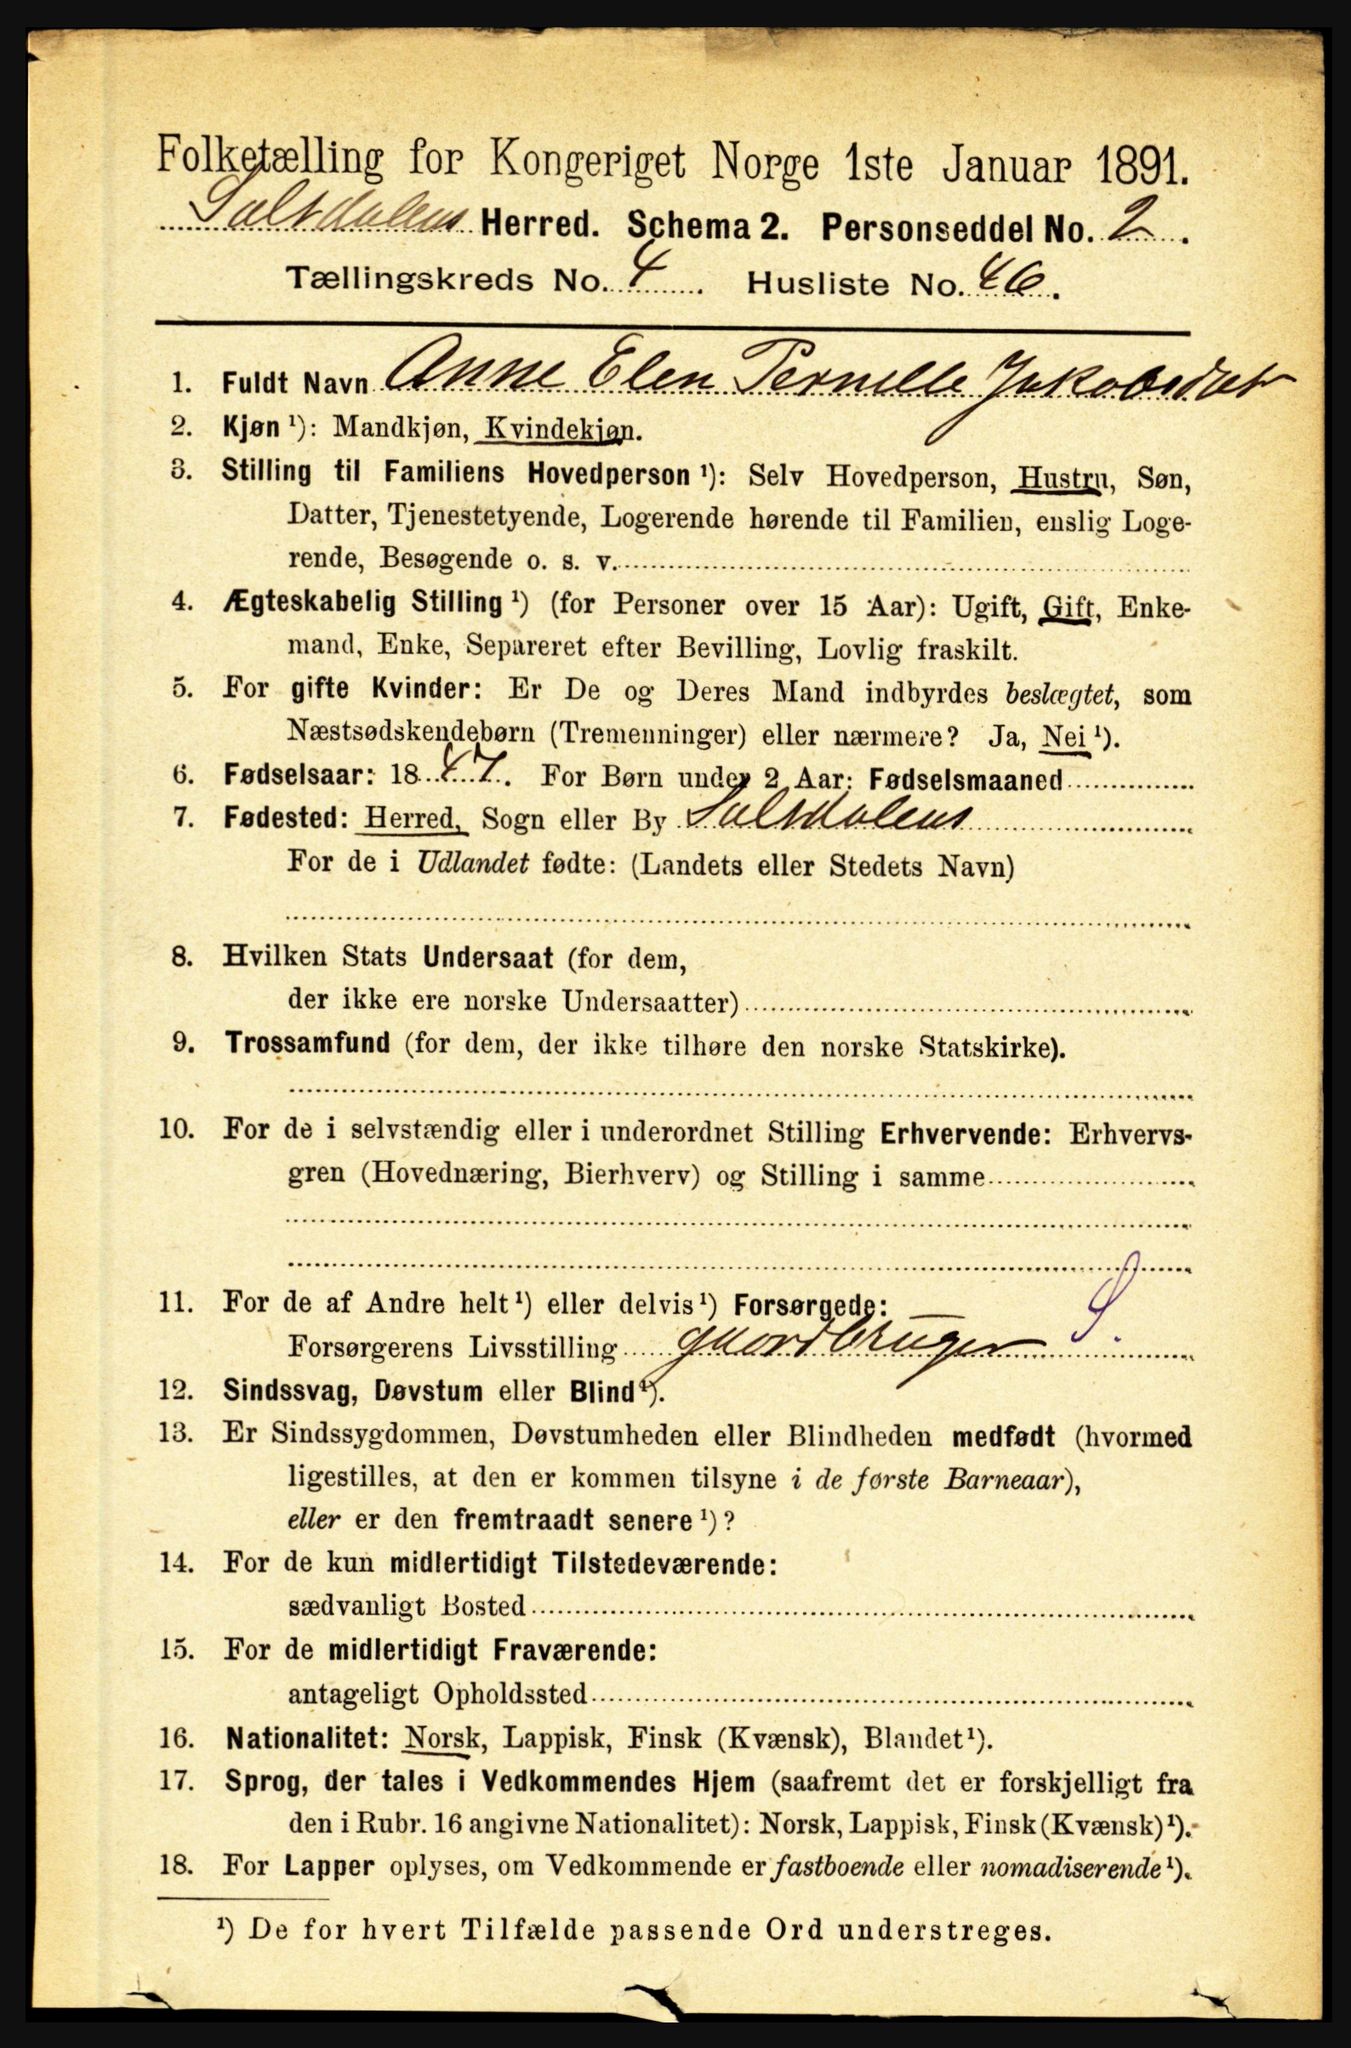 Folketælling for Kongeriget Norge 1ste Januar 1891.
Saltdalens Herred. Schema 2. Personseddel No. 2.
Tællingskreds No. 4. Husliste No. 46.
1. Fuldt Navn Anne Elen Pernelle Jakobsdat
2. Kjøn ¹): Mandkjøn, Kvindekjøn.
3. Stilling til Familiens Hovedperson ¹): Selv Hovedperson, Hustru, Søn,
Datter, Tjenestetyende, Logerende hørende til Familien, enslig Loge-
rende, Besøgende o. s. v.
4. Ægteskabelig Stilling ¹) (for Personer over 15 Aar): Ugift, Gift, Enke-
mand, Enke, Separeret efter Bevilling, Lovlig fraskilt.
5. For gifte Kvinder: Er De og Deres Mand indbyrdes beslægtet, som
Næstsødskendebørn (Tremenninger) eller nærmere? Ja, Nei ¹).
6. Fødselsaar: 1847. For Børn under 2 Aar: Fødselsmaaned
7. Fødested: Herred, Sogn eller By Saltdalens
For de i Udlandet fødte: (Landets eller Stedets Navn)
8. Hvilken Stats Undersaat (for dem,
der ikke ere norske Undersaatter)
9. Trossamfund (for dem, der ikke tilhøre den norske Statskirke).
10. For de i selvstændig eller i underordnet Stilling Erhvervende: Erhvervs-
gren (Hovednæring, Bierhverv) og Stilling i samme
11. For de af Andre helt ¹) eller delvis ¹) Forsørgede:
Forsørgerens Livsstilling gaardbruger S.
12. Sindssvag, Døvstum eller Blind ¹).
13. Er Sindssygdommen, Døvstumheden eller Blindheden medfødt (hvormed
ligestilles, at den er kommen tilsyne i de første Barneaar),
eller er den fremtraadt senere ¹)?
14. For de kun midlertidigt Tilstedeværende:
sædvanligt Bosted
15. For de midlertidigt Fraværende:
antageligt Opholdssted
16. Nationalitet: Norsk, Lappisk, Finsk (Kvænsk), Blandet ¹).
17. Sprog, der tales i Vedkommendes Hjem (saafremt det er forskjelligt fra
den i Rubr. 16 angivne Nationalitet): Norsk, Lappisk, Finsk (Kvænsk) ¹).
18. For Lapper oplyses, om Vedkommende er fastboende eller nomadiserende ¹).
¹) De for hvert Tilfælde passende Ord understreges.